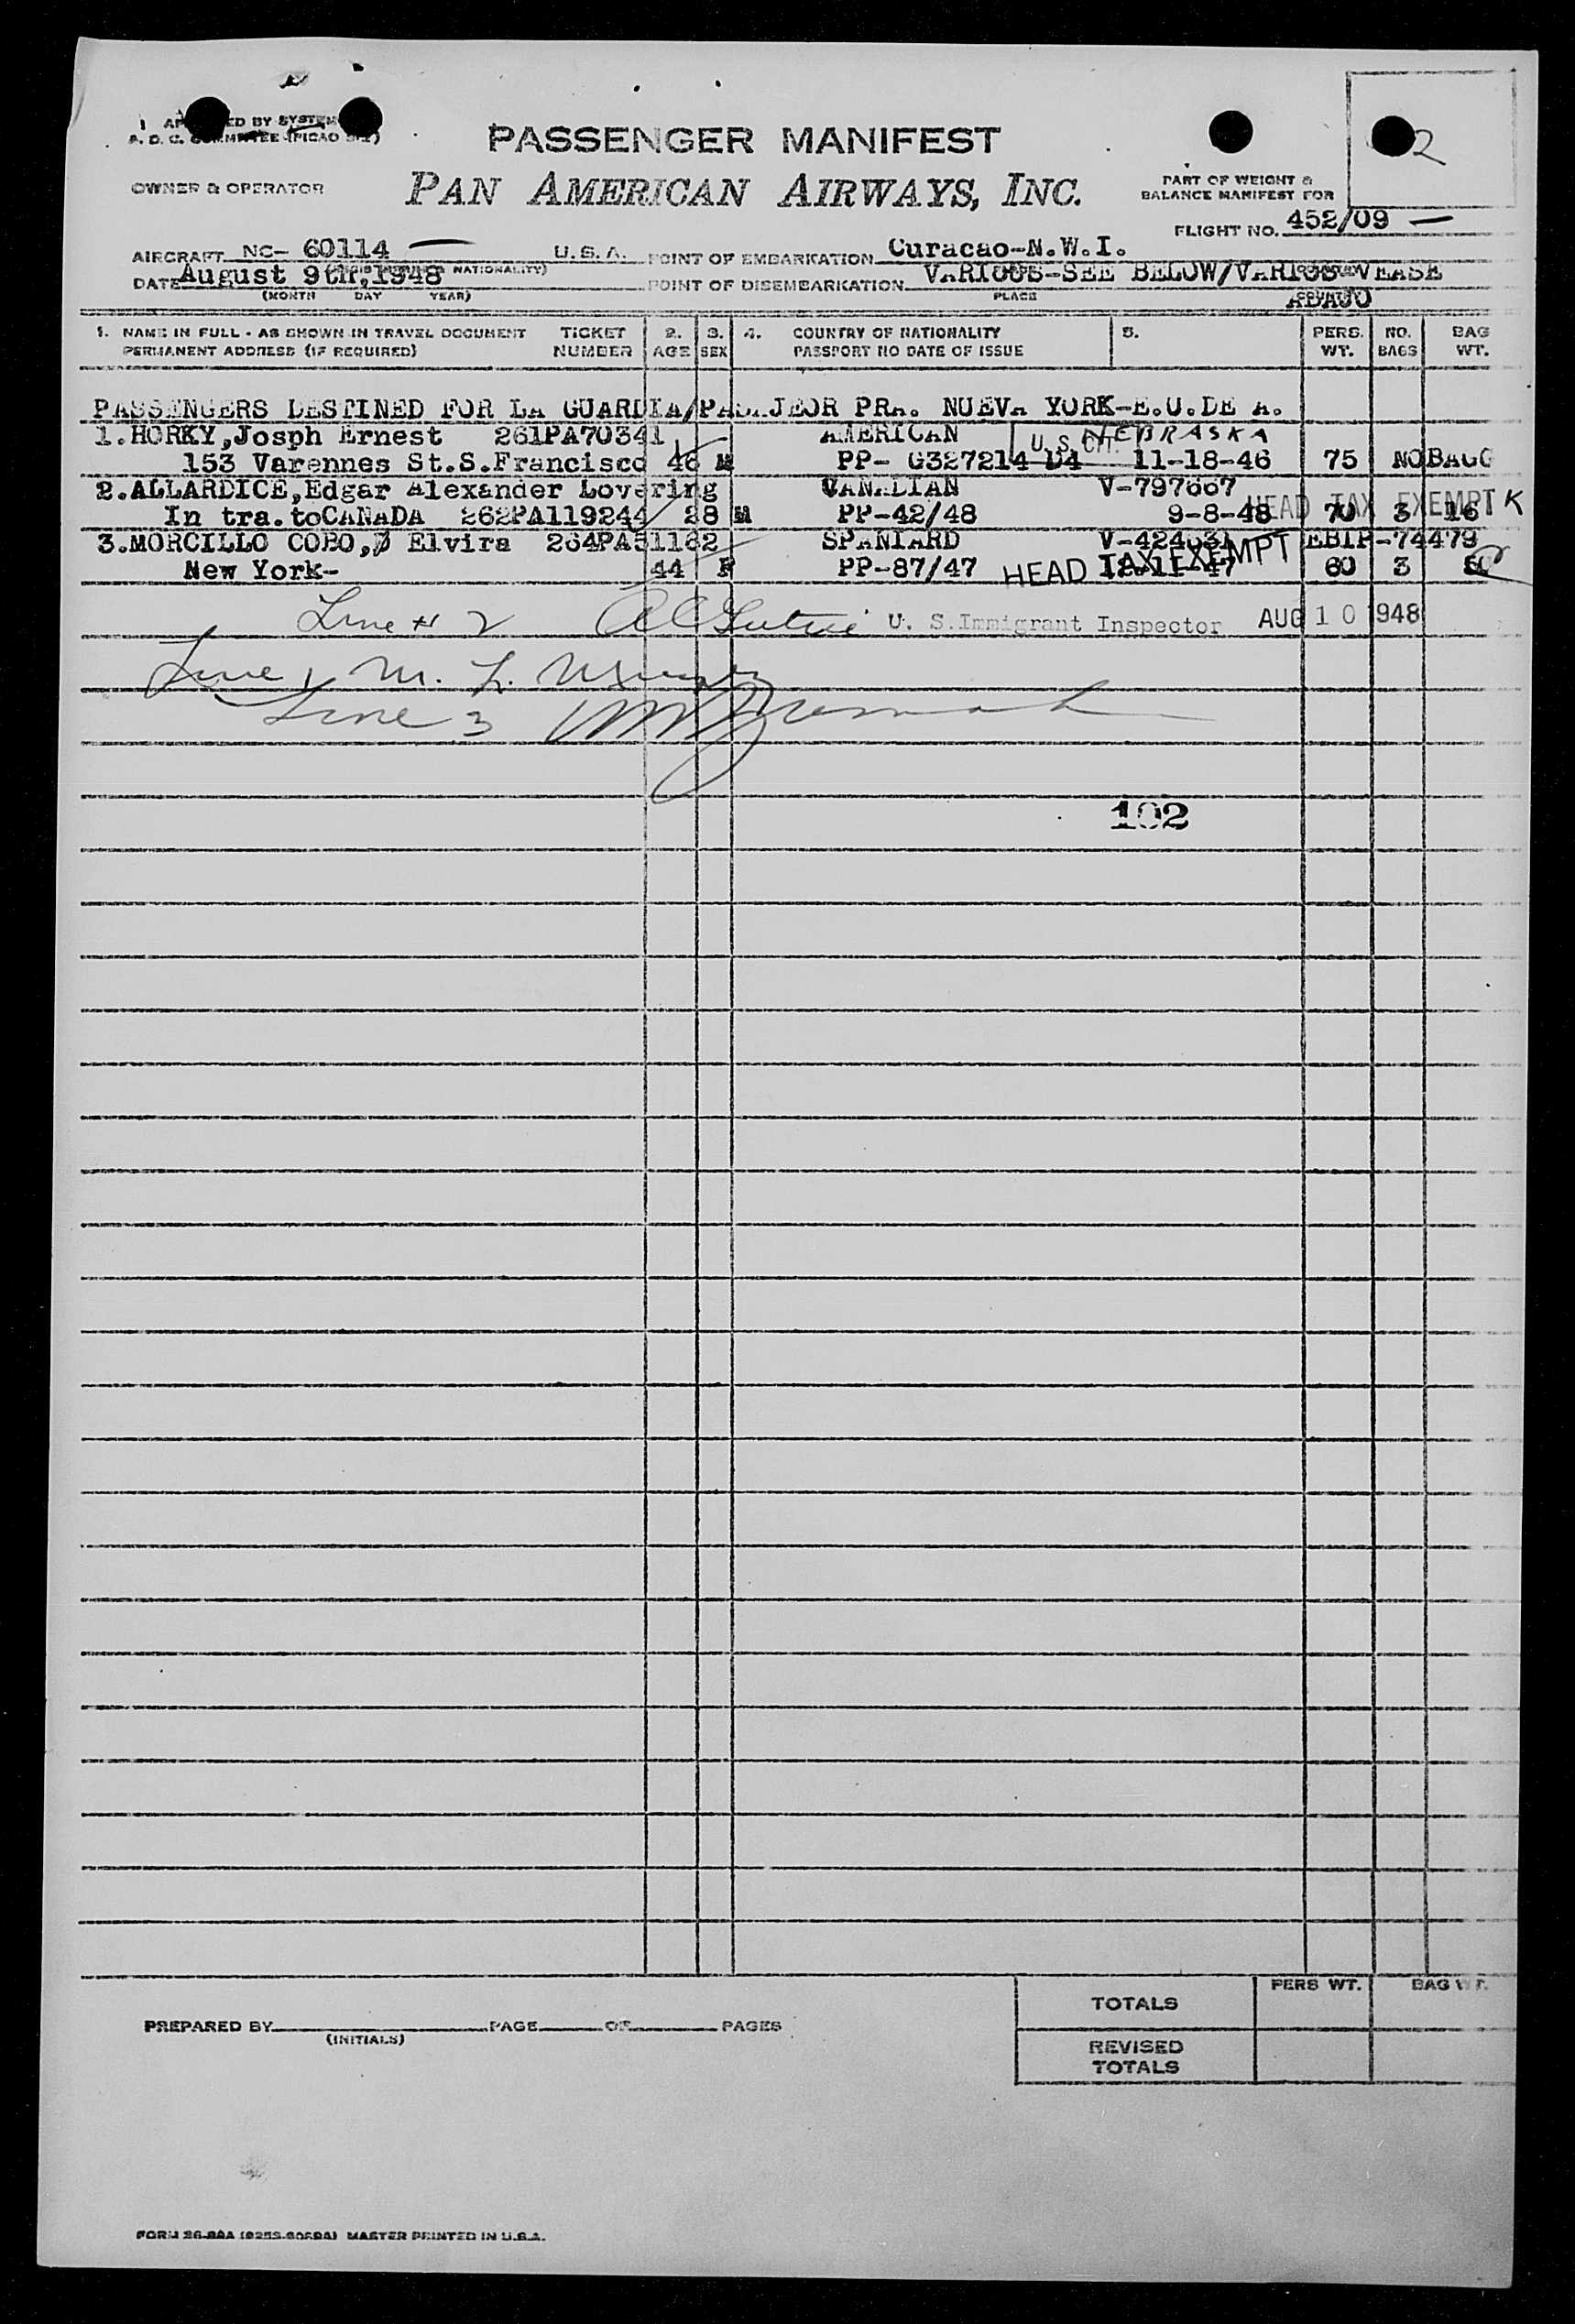 PASSENGER MANIFEST
OWNER & OPERATOR PAN AMERICAN AIRWAYS, INC.
PART OF WEIGHT &
BALANCE MANIFEST FOR
FLIGHT NO. 452/09
2
AIRCRAFT NC- 60114 U.S.A. POINT OF EMBARKATION Curacao-N.W.I.
DATE August 9th,1948 POINT OF DISEMBARKATION VARIOUS-SEE BELOW/VARIOS-VEASE
(MONTH DAY YEAR) PLACE ABAJO
1. NAME IN FULL - AS SHOWN IN TRAVEL DOCUMENT TICKET 2. 3. 4. COUNTRY OF NATIONALITY 5. PERS. NO. BAG
PERMANENT ADDRESS (IF REQUIRED) NUMBER AGE SEX PASSPORT NO DATE OF ISSUE WT. BAGS WT.
PASSENGERS DESTINED FOR LA GUARDIA/ PRA. NUEVA YORK-E.U.DE A.
1.HORKY,Josph Ernest 261PA70341 AMERICAN U.S. CIT. NEBRASKA
153 Varennes St.S.Francisco 46 M PP- G327214 D4 11-18-46 75 NO BAGG
2.ALLARDICE,Edgar Alexander Lovering CANADIAN V-797667 HEAD TAX EXEMPT K
In tra.toCANADA 262PA119244 28 M PP-42/48 9-8-48 70 3 16
3.MORCILLO COBO, Elvira 264PA51182 SPANIARD V-424631 EBIP-74479
New York- 44 F PP-87/47 HEAD TAX EXEMPT 12-11-47 60 3
Line # 2 U. S.Immigrant Inspector AUG 10 1948
Line 1 M. L.
Line 3
102
TOTALS PERS WT. BAG WT.
REVISED
TOTALS
PREPARED BY PAGE OF PAGES
(INITIALS)
MASTER PRINTED IN U.S.A.